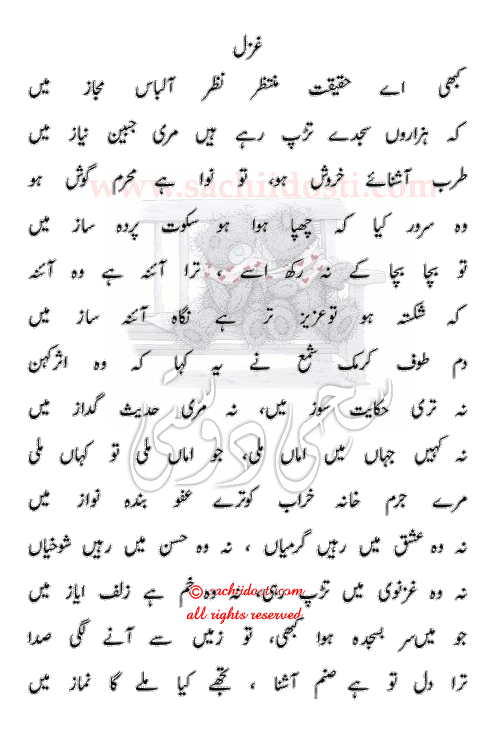 غزل
کبھی اے حقیقت منتظر نظر آ لباس مجاز میں
کہ ہزاروں سجدے تڑپ رہے ہیں مری جبین نیاز میں
طرب آشنائے خروش ہو، تو نوا ہے محرم گوش ہو
www.sachiidosti.com
وہ سرور کیا کہ چھپا ہوا ہو سکوت پردہ ساز میں
تو بچا بچا کے نہ رکھ اسے ، ترا آئنہ ہے وہ آئنہ
کہ شکستہ ہو تو عزیز تر ہے نگاہ آئنہ ساز میں
دم طوف کرمک شمع نے یہ کہا کہ وہ اثر کہن
نہ تری حکایت سوز میں، نہ مری حدیث گداز میں
سچی دوستی
نہ کہیں جہاں میں اماں ملی، جو اماں ملی تو کہاں ملی
مرے جرم خانہ خراب کو ترے عفو بندہ نواز میں
نہ وہ عشق میں رہیں گرمیاں ، نہ وہ حسن میں رہیں شوخیاں
نہ وہ غزنوی میں تڑپ رہی، نہ وہ خم ہے زلف ایاز میں
© sachiidosti.com
all rights reserved
جو میں سر بسجدہ ہوا کبھی، تو زمیں سے آنے لگی صدا
ترا دل تو ہے صنم آشنا ، تجھے کیا ملے گا نماز میں